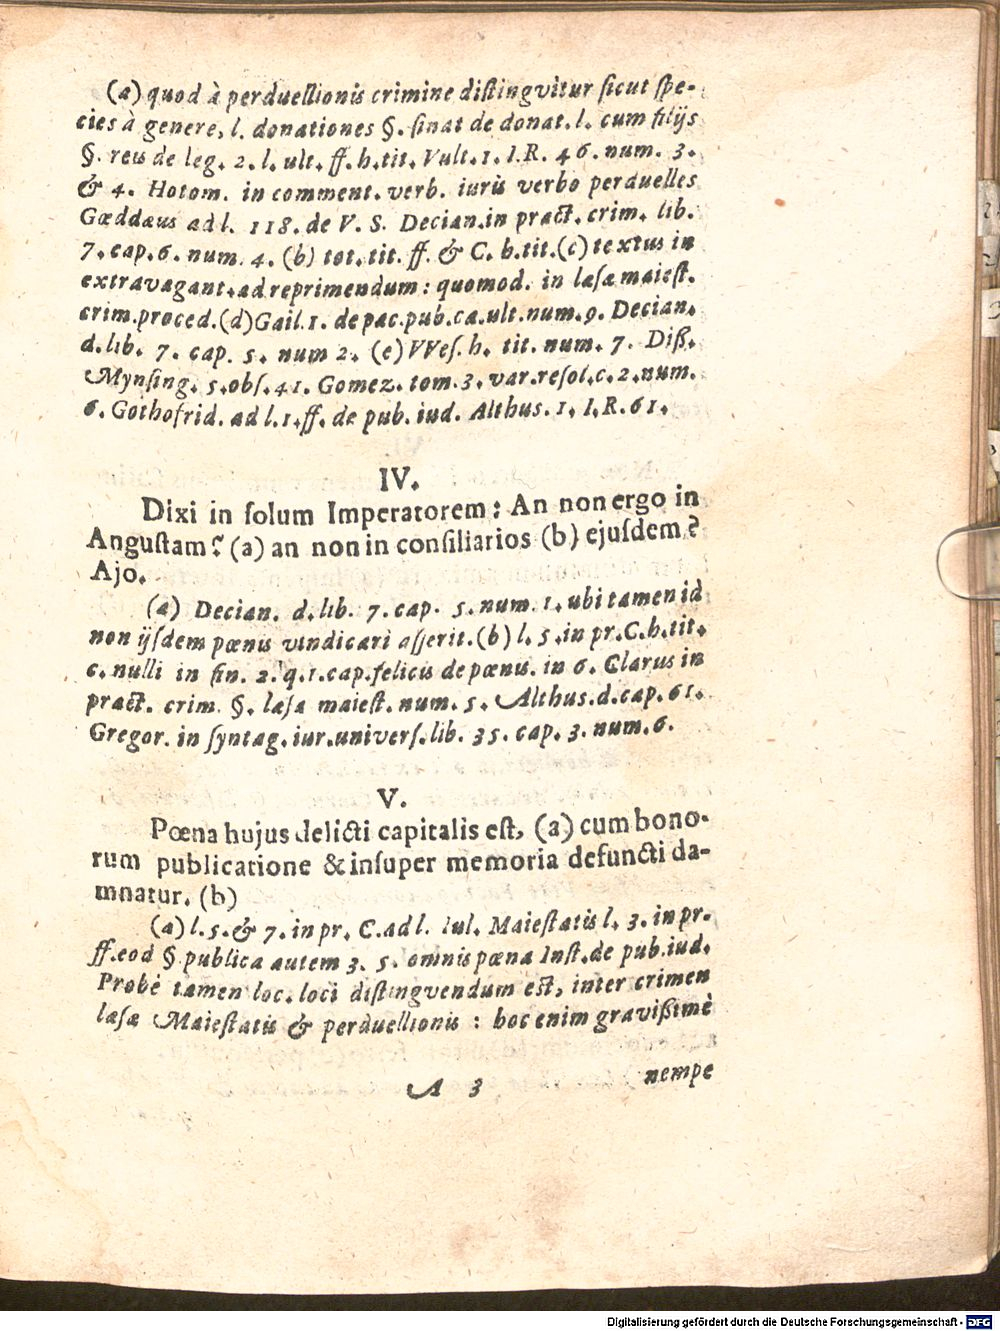 (a) quod à perduellionis crimine distingvitur sicut spe-
cies à genere, l. donationes §. sinat de donat. l. cum filijs
§. reis de leg. 2. l. ult. ff. h. tit. Vult. 1. I.R. 46. num. 3.
& 4. Hotom. in comment. verb. iuris verbo perduelles
Gœddæus ad l. 118. de V. S. Decian. in pract. crim. lib.
7. cap. 6. num. 4. (b) tot. tit. ff. & C. h. tit. (c) textus in
extravagant. ad reprimendum: quomod. in læsæ maiest.
crim. proced. (d) Gail. 1. de pac. pub. ca. ult. num. 9. Decian.
d. lib. 7. cap. 5. num 2. (e) VVes. h. tit. num. 7. Diß.
Mynsing. 5. obs. 41. Gomez. tom. 3. var. resol. c. 2. num.
6. Gothofrid. ad l. 1. ff. de pub. iud. Althus. 1. I.R. 61.
IV.
Dixi in solum Imperatorem: An non ergo in
Angustam? (a) an non in consiliarios (b) ejusdem?
Ajo.
(a) Decian. d. lib. 7. cap. 5. num. 1. ubi tamen id
non ijsdem pœnis vindicari asserit. (b) l. 5. in pr. C. h. tit.
c. nulli in fin. 2. q. 1. cap. felicis de pœnis. in 6. Clarus in
pract. crim. §. læsæ maiest. num. 5. Althus. d. cap. 61.
Gregor. in syntag. iur. univers. lib. 35. cap. 3. num. 6.
V.
Pœna hujus delicti capitalis est, (a) cum bono-
rum publicatione & insuper memoria defuncti da-
mnatur. (b)
(a) l. 5. & 7. in pr. C. ad l. Iul. Maiestatis l. 3. in pr.
ff. eod § publica autem 3. 5. omnis pœna Inst. de pub. iud.
Probè tamen loc. loci distingvendum est, inter crimen
læsæ Maiestatis & perduellionis: hoc enim gravißimè
A 3
nempe
Digitalisierung gefördert durch die Deutsche Forschungsgemeinschaft - DFG